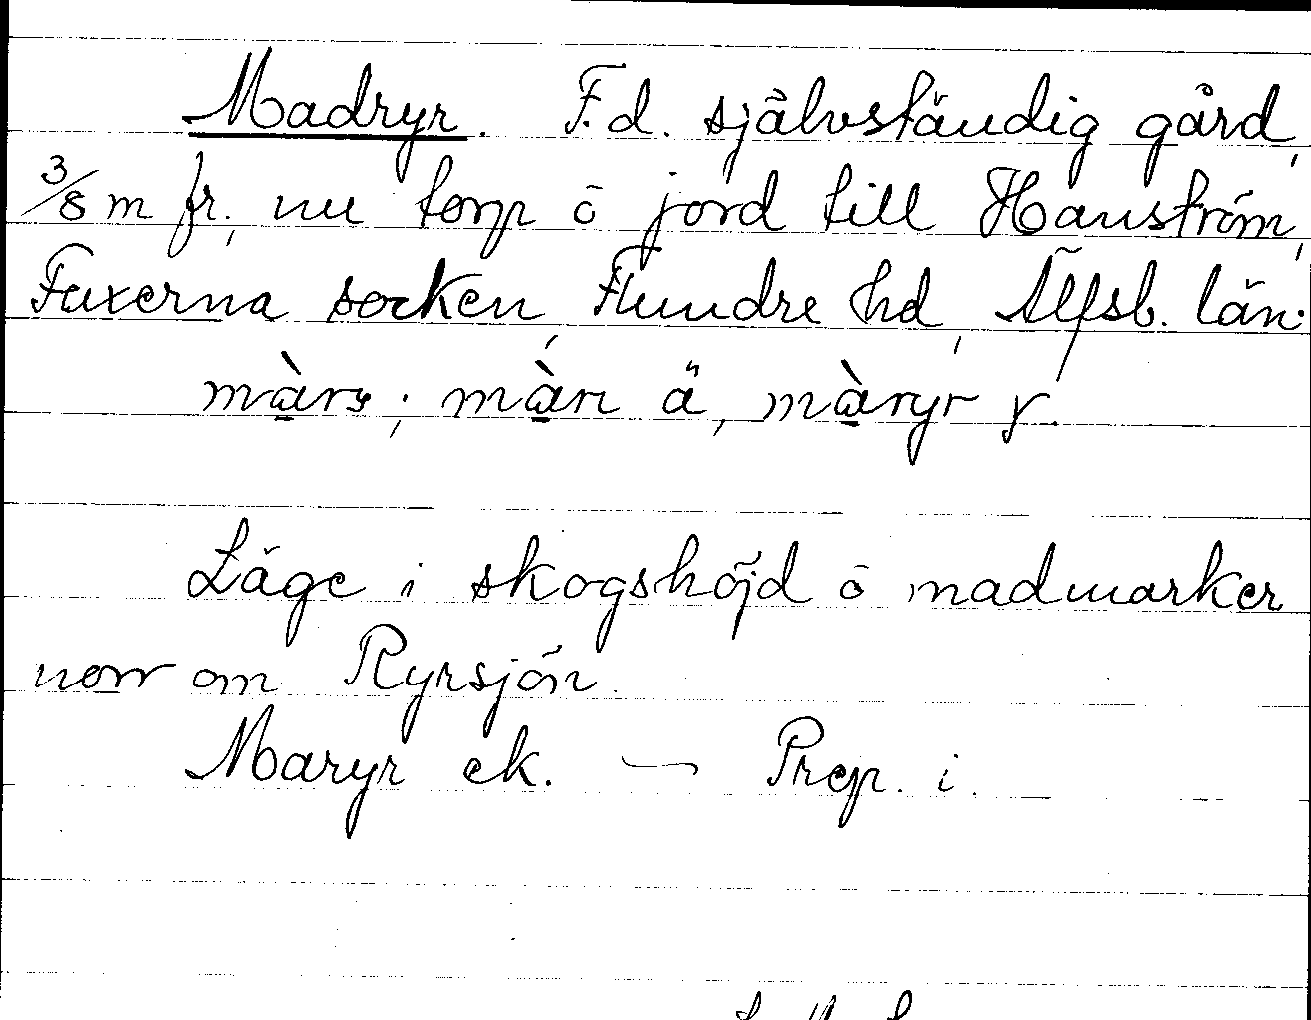 Madryr. F.d. självständig gård,
3/8 m fr, nu torp o jord till Hanström,
Fuxerna socken, Flundre hd, Älfsb. län.
màry; màri ä, màryr γ.
Läge i skogshöjd o madmarker
norr om Ryrsjön.
Maryr ek. — Prep. i.